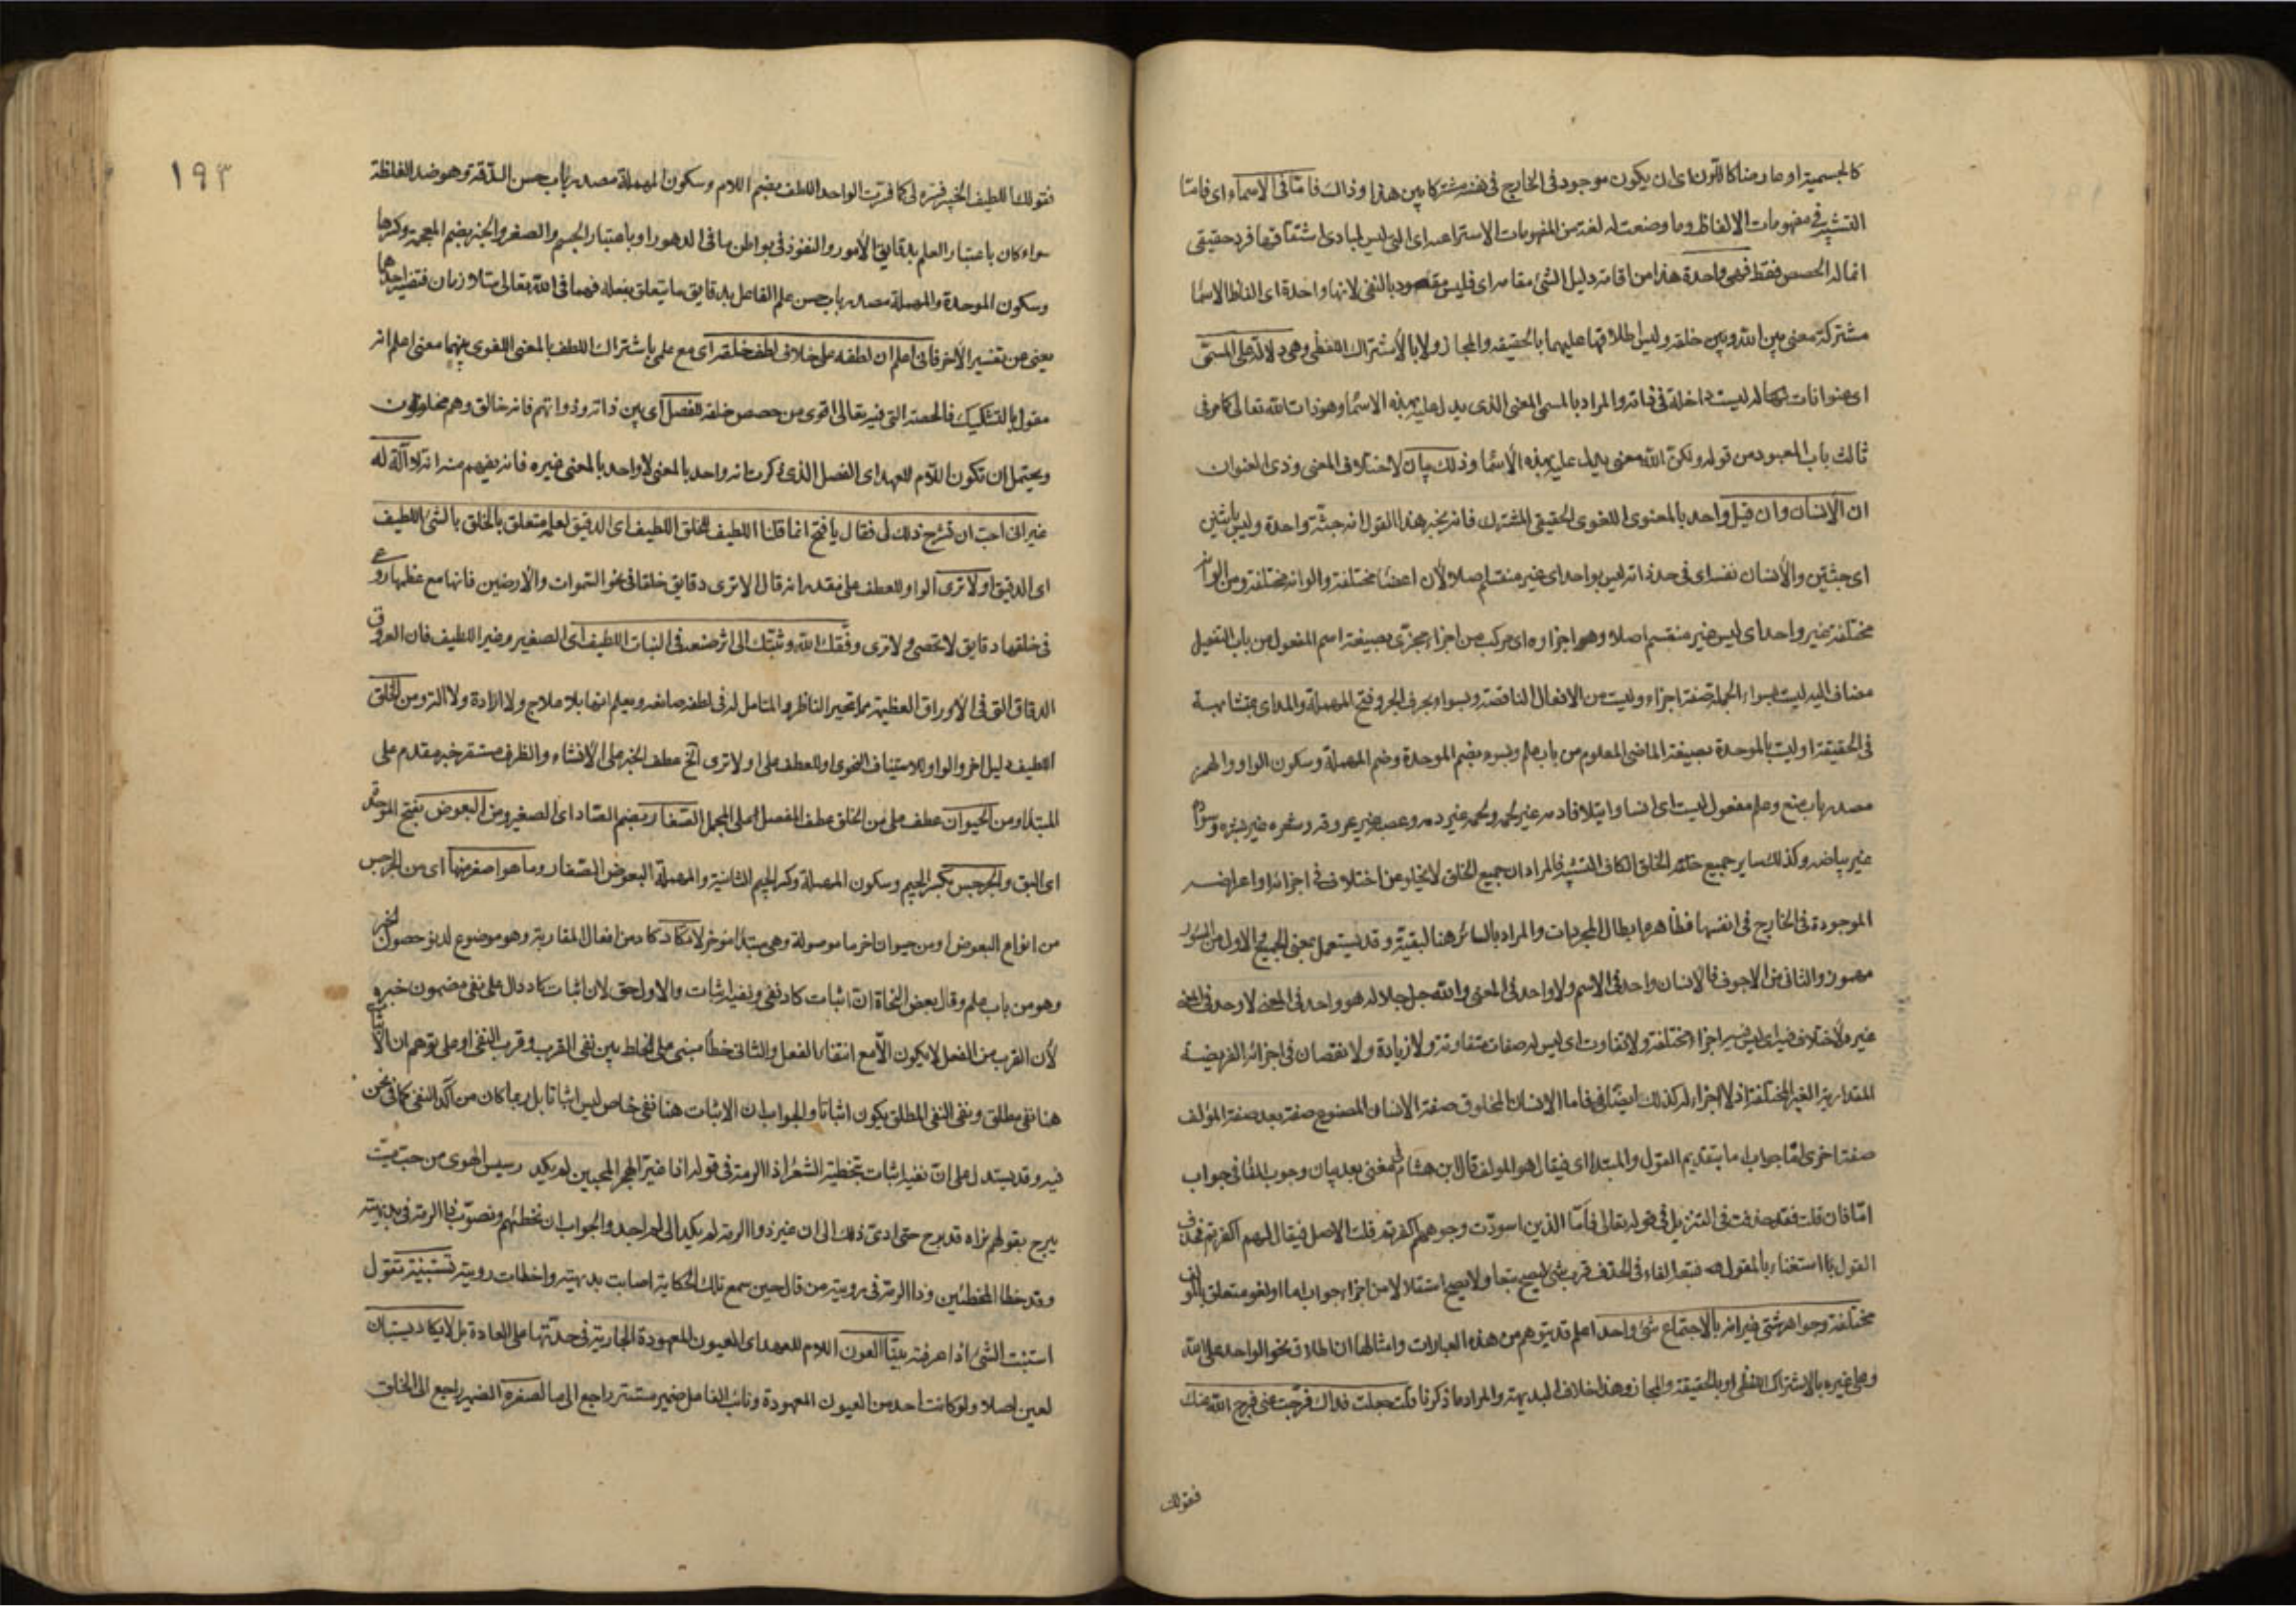 كالجسمية او عارضا كاللون اى ان يكون موجود فى الخارج فى نفسه مشتركا بين هذا وذاك فامّا فى الاسماء اى فامّا
التشبيه فى مفهومات الالفاظ وما وضعت له لغة من المفهومات اى التى ليس لمبادى اشتقاقها فرد حقيقى
انما له الحصص فقط فهى واحدة هذا من اقامة دليل الشئ مقامه اى فليس مقصود بالنفى لانها واحدة اى الفاظ الاسما
مشتركة معنى بين الله وبين خلقه وليس اطلاقها عليهما بالحقيقه والمجاز ولا بالاشتراك اللفظى وهى دلالة على المسمّى
اى عنوانات له ليست داخلة فى ذاته والمراد بالمسمى المعنى الذى يدل عليه بهذه الاسما وهو ذات الله تعالى كما مر فى
ثالث باب المعبود من قوله ولكن الله معنى يدل عليه بهذه الأسما وذلك بيان لاختلاف المعنى وذى العنوان
ان الانسان وان قيل واحد بالمعنوى اللغوى الحقيقى المشترك فانه يخبر هذا القول انه جثّة واحدة وليس باثنين
اى جثتين والأنسان نفسه اى فى حد ذاته ليس بواحد اى غير منقسم اصلا لأن اعضاءه مختلفة والوانه مختلفة ومن الوانه
مختلفة غير واحد اى ليس غير منقسم اصلا وهو اجزاوه اى مركب من اجزاء مجزّى بصيغة اسم المفعول من باب التفعيل
مضاف اليه ليست بسواء الجملة صفة اجزاء وليست من الافعال الناقصة وبسواء بحرف الجر وفتح المهملة والمد اى متشابهة
فى الحقيقة او ليست بالموحدة بصيغة الماضى المعلوم من باب علم وبسوء بضم الموحدة وضم المهملة وسكون الواو والهمز
مصدر باب منع وعلم مفعول ليست اى انسا وايتلافا دمه غير لحمه ولحمه غير دمه وعصبه غير عروقه وشعره غير بشره وسواده
غير بياضه وكذلك ساير جميع خلقه الخلق الكاف للتشبيه فالمراد ان جميع الخلق لا يخلو عن اختلاف فى اجزائه او اعراضه
الموجودة فى الخارج فى انفسها فظاهره ابطال المجردات والمراد بالسائر هنا البقية وقد يستعمل بمعنى الجميع والاول من السؤر
مهموز والثانى من الاجوف فالانسان واحد فى الاسم ولا واحد فى المعنى والله جل جلاله هو واحد فى المعنى لا واحد فى المعنى
غيره لا اختلاف فيه اى ليس فيه اجزاء مختلفة ولا تفاوت اى ليس له صفات متفاوتة ولا زيادة ولا نقصان فى اجزائه الفريضة
المقدارية الغير المختلفة اذ لا اجزاء له كذلك ايضا فاما الانسان المخلوق صفة الانسان المصنوع صفة بعد صفة المؤلف
صفة اخرى امّا جواب اما بتقديم القول والمبتدأ اى فيقال هو المولف قال ابن هشام فى مغنى بعد بيان وجوب الفا فى جواب
امّا فان قلت فقد حذفت فى التنزيل فى قوله تعالى فامّا الذين اسودّت وجوههم اكفرتم قلت الاصل فيقال لهم اكفرتم فحذف
القول استغناء بالمقول فتبعه الفاء فى الحذف فرب شئ يصح تبعا ولا يصح استقلالا من اجزاء جواب اما او لغو متعلق بالمولف
مختلفة وجواهر شتى غير انه بالاجتماع شئ واحد اعلم قد يتوهم من هذه العبارات وامثالها ان اطلاق نحو الواحد على الله
وعلى غيره بالاشتراك اللفظى او بالحقيقة والمجاز وهذا خلاف البديهة والمراد ما ذكرنا قلت جعلت فداك فرّجت عنى فرج الله عنك
فقولك
١٩٣
فقولك اللطيف الخبير فسّره لى كما فسّرت الواحد اللطف بضم اللام وسكون المهملة مصدر باب حسن الدقة وهو ضد الغلظة
سواء كان باعتبار العلم بدقايق الأمور والنفوذ فى بواطن ما فى الدهور او باعتبار الجسم والصغر والخبر بضم المعجمة وكسرها
وسكون الموحدة والمهملة مصدر باب حسن علم الفاعل بدقايق ما يتعلق بفعله فهما فى الله تعالى متلازمان فتفسير احدهما
يغنى عن تفسير الأخر فانى اعلم ان لطفه على خلاف لطف خلقه اى مع علمى باشتراك اللطف بالمعنى اللغوى بينهما معنى اعلم انه
مقول بالتشكيك فالحصة التى فيه تعالى اقوى من حصص خلقه للفصل اى بين ذاته وذواتهم فانه خالق وهم مخلوقون
ويحتمل ان تكون اللام للعهد اى الفصل الذى ذكرت انه واحد بالمعنى لا واحد بالمعنى غيره فانه يفهم منه انه لا آلة له
غير انى احب ان تشرح ذلك لى فقال يا فتح انما قلنا اللطيف للخلق اللطيف اى الدقيق لعلمه متعلق بالخلق بالشئ اللطيف
اى الدقيق او لا ترى الواو للعطف على مقدر انه قال الا ترى دقايق خلقنا فى نحو السموات والارضين فانها مع عظمها روعى
فى خلقها دقايق لا تحصى ولا ترى وفّقك الله وثبّتك الى اثر صنعه فى النبات اللطيف اى الصغير وغير اللطيف فان العروق
الدقاق التى فى الأوراق العظيمة مما تحير الناظر والمتأمل له فى لطف صانعه ويعلم انها بلا علاج ولا ارادة ولا آلة ومن الخلق
اللطيف دليل اخر والواو للاستيناف النحوى او للعطف على او لا ترى الخ عطف الخبر على الانشاء والظرف مستقر خبر مقدم على
المبتدا ومن الحيوان عطف على من الخلق عطف المفصل على المجمل الصّغار بضم الصّاد اى الصغير ومن البعوض بفتح الموحدة
اى البق والجرجس بكسر الجيم وسكون المهملة وكسر الجيم الثانية والمهملة البعوض الصّغار وما هو اصغر منها اى من الجرجس
من انواع البعوض او من حيوان اخر ما موصولة وهى مبتدا مؤخر لا يكاد كاد من افعال المقاربة وهو موضوع لدنو حصول الخبر
وهو من باب علم وقال بعض النحاة انّ اثبات كاد نفى ونفيه اثبات والاول حق لان اثبات كاد دال على نفى مضمون خبره
لأن القرب من الفعل لا يكون الّا مع انتفاء الفعل والثانى خطأ مبنى على الخلط بين نفى القرب وقرب النفى او على توهم ان الاثبات
هنا نفى مطلق ونفى النفى المطلق يكون اثباتا والجواب ان الاثبات هنا نفى خاص ليس اثباتا بل ربما كان من آكد النفى كما فى نحن
فيه وقد يستدل على انّ نفيه اثبات بتخطئة الشعراء ذا الرمة فى قوله اذا غيّر الهجر المحبين لم يكد رسيس الهوى من حب ميّت
يبرح بقولهم نراه قد برح حتى ادى ذلك الى ان غير ذو الرمة لم يكد الى لم اجد والجواب ان نخطئهم ونصوّب ذا الرمة فى بديهته
وقد خطا المخطئين وذا الرمة فى رويته من قال حين سمع تلك الحكاية اصابت بديهته واخطات رويته تستبينه تقول
استبنت الشئ اذا عرفته بيّنا العيون اللام للعهد اى العيون المعهودة الجارية فى حدّتها على العادة بل لا يكاد يستبان
لعين اصلا ولو كانت احد من العيون المعهودة ونائب الفاعل ضمير مستتر راجع الى ما لصغره الضمير راجع الى الخلق